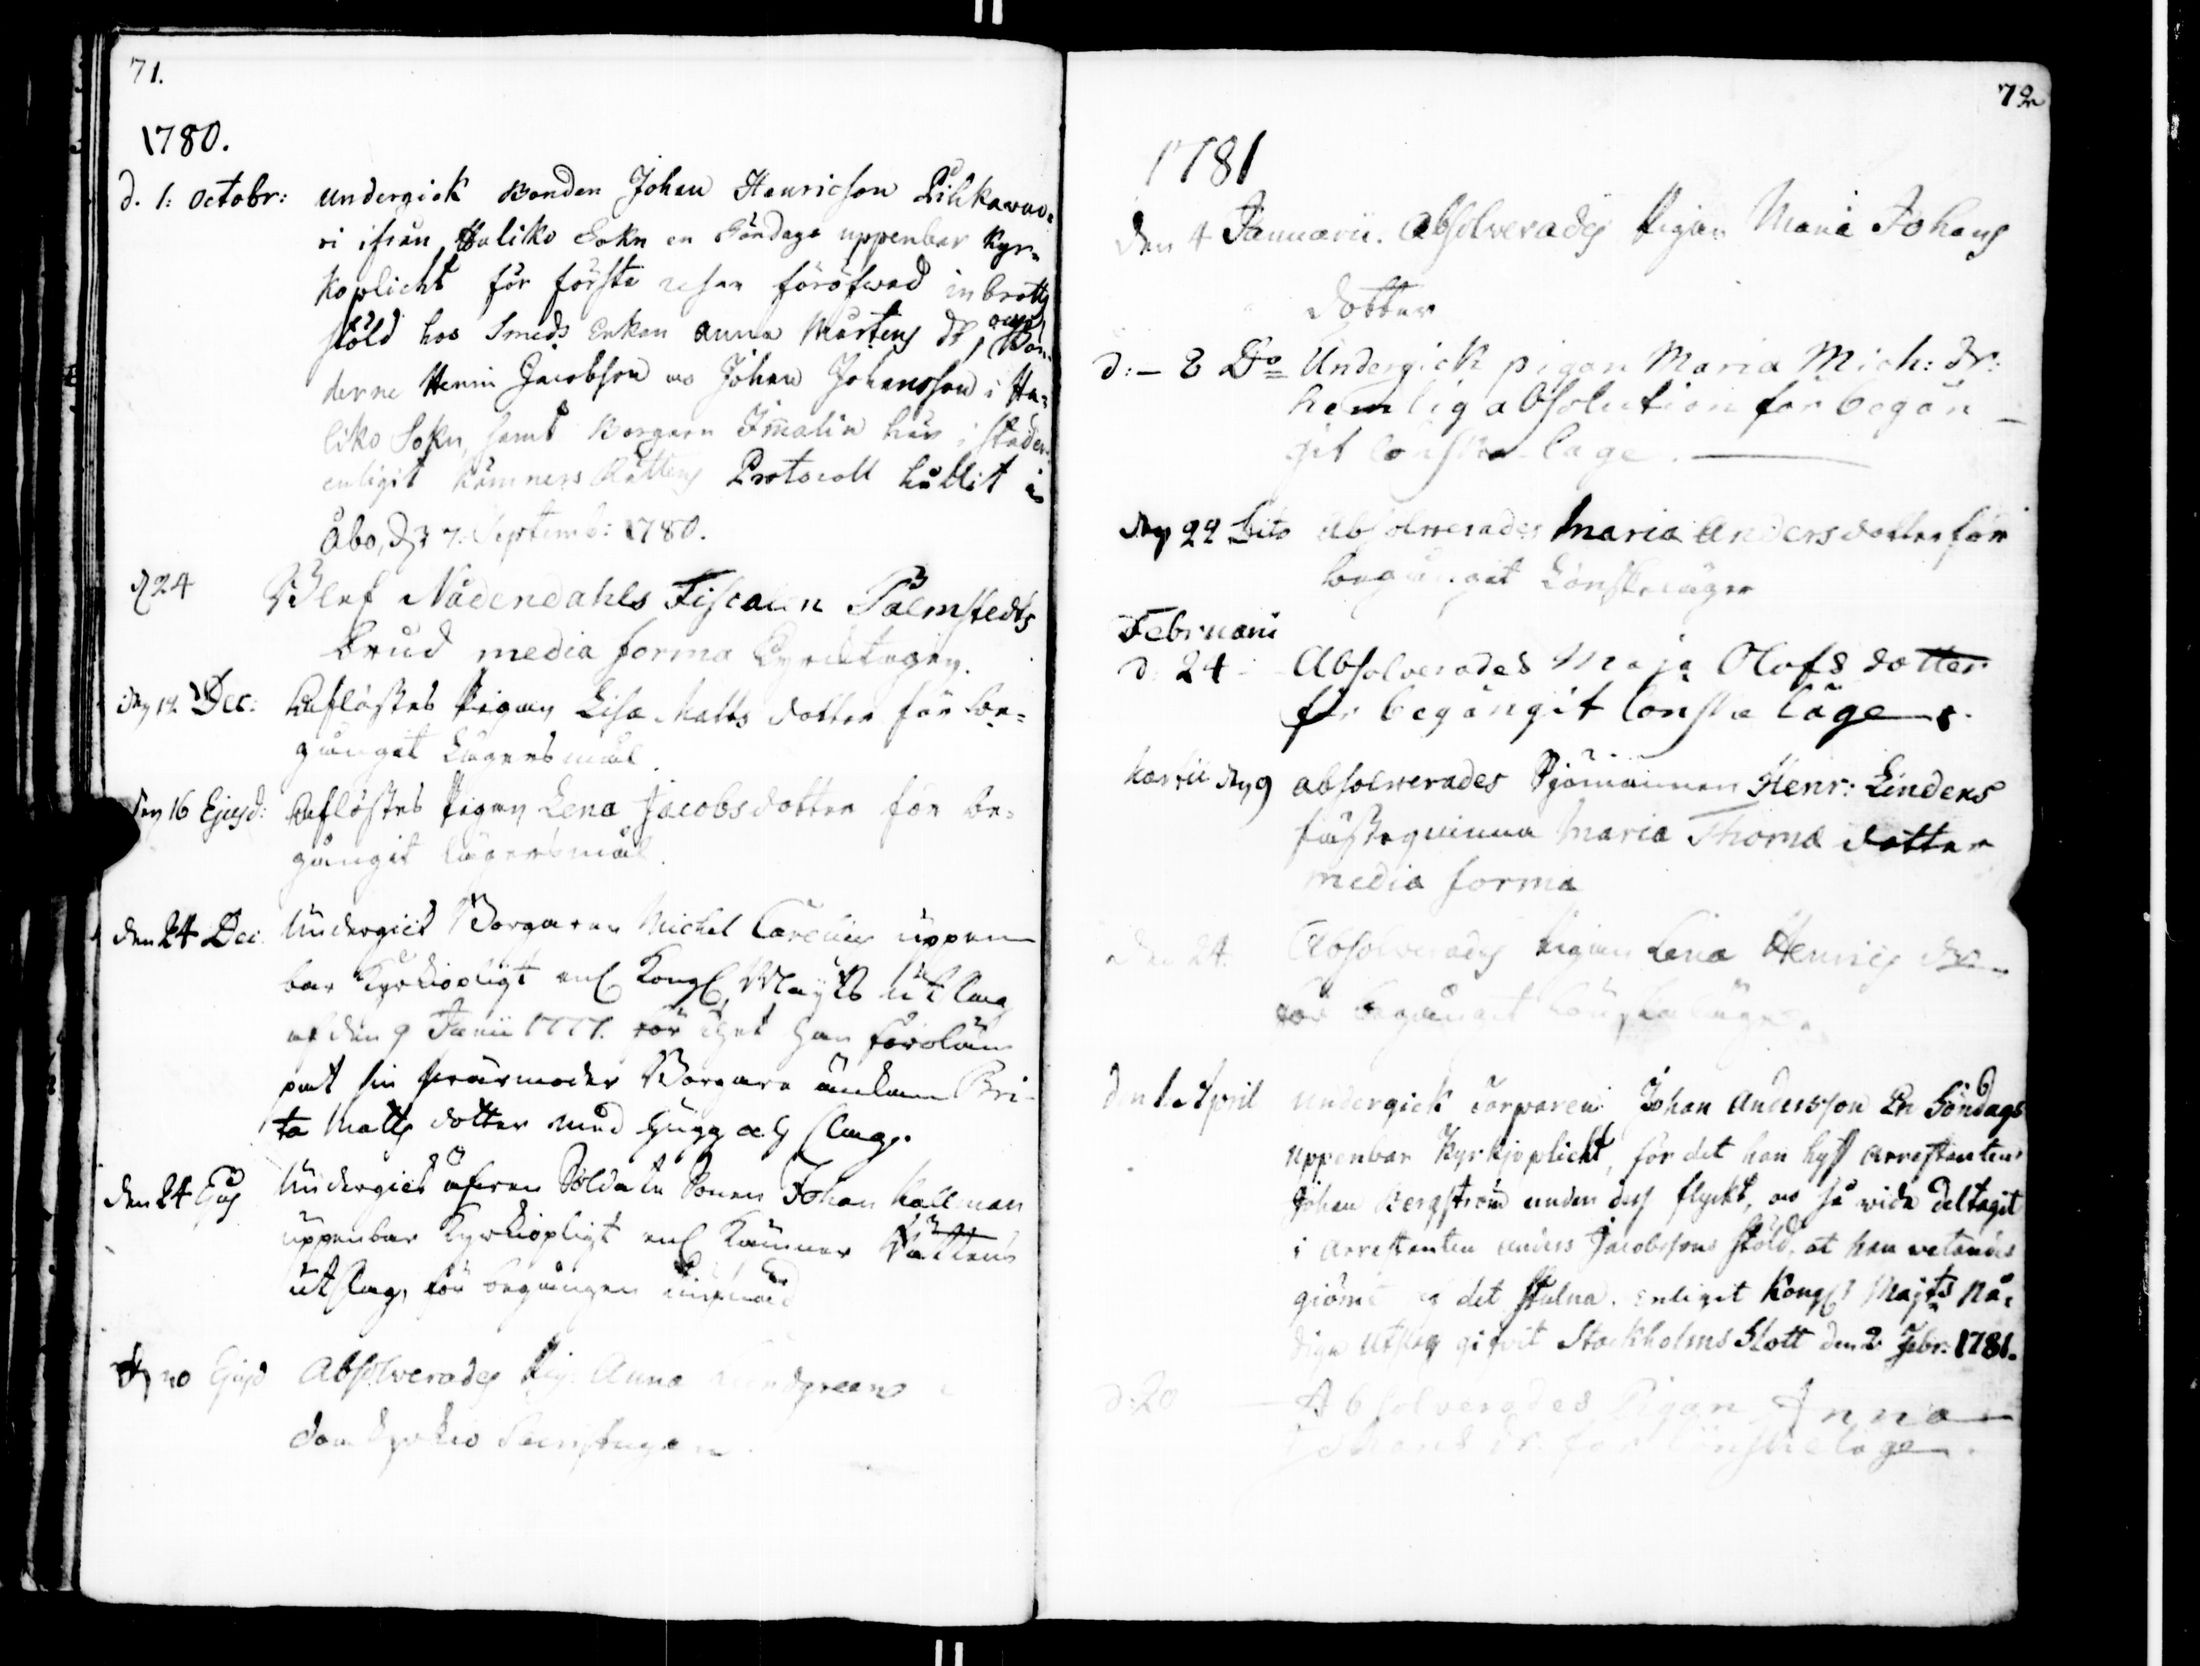 71.
1780.
d. 1: Octobr: undergick Bonden Johan Henricson Pihkawuo=
ri ifrån Haliko Sokn en Söndags uppenbar Kyr=
koplicht för första resan föröfwad inbrotts
stöld hos Smeds Enkan Anna Mårtens dr, Bon-
derne Henric Jacobson oc Johan Johansson i Ha=
liko Sokn, samt Borgaren Immalin här i staden
enligit Kämners Rättens Protocoll hållit i
Åbo, d. 7. Septemb: 1780.
d 24 Blef Nådendahls Fiscalen Palmstedts
brud media forma Kyrcktagen.
den 12 Dec: Aflöstes Pigan Lisa Matts dotter för be=
gångit Lägersmål.
den 16 Ejusd: Aflöstes Pigan Lena Jacobsdotter för be=
gångit lägersmål.
den 24 Dec. Undergick Borgaren Michel Carelius uppen
bar Kyrkiopligt enl Kongl Mayts utslag
af den 9 Junii 1777. för thet han föroläm
pat sin swärmoder Borgare änckan Bri-
ta Matts dotter med hugg och slag.
den 24 Ejus Undergick äfwen Soldate Sonen Johan Kallman
uppenbar Kyrkiopligt enl Kämner Rättens
utslag, för begången
d 20 Ejusd Absolverades Pig: Anna
72
1781
den 4 Januarii. Absolverades Pigan Maria Johans
dotter
d: - 8 Do Undergick pigan Maria Mich: dr:
hemlig absolution för begån -
git lönska läge.
den 22 Dito Absolverades Maria Andersdotter för
begångit Lönskeläger
Februarii
d. 24 - Absolverades Maja Olofs dotter
för begångit lönska läge.
Martii den 9 absolverades Sjömannen Henr: Lindens
fästeqvinna Maria Thomæ dotter
media forma
den 24. Absolverades Pigan Lena Henrics dr
för begånget Lönskaläge.
den 1. April undergick Torparen Johan Andersson En Söndags
uppenbar Kyrkjoplicht, för det han hyst Arrestanten
Johan Bergström under dess flyckt, oc så vida deltagit
i Arrestanten Anders Jacobssons stöld, at han vetandes
giömt det stulna. Enligit Kongl Majts Nå=
dige Utslag gifvit Stockholms Slott den 2 Febr: 1781.
d: 20 Absolverades Pigan Anna
Johans dr. för lönskeläge.